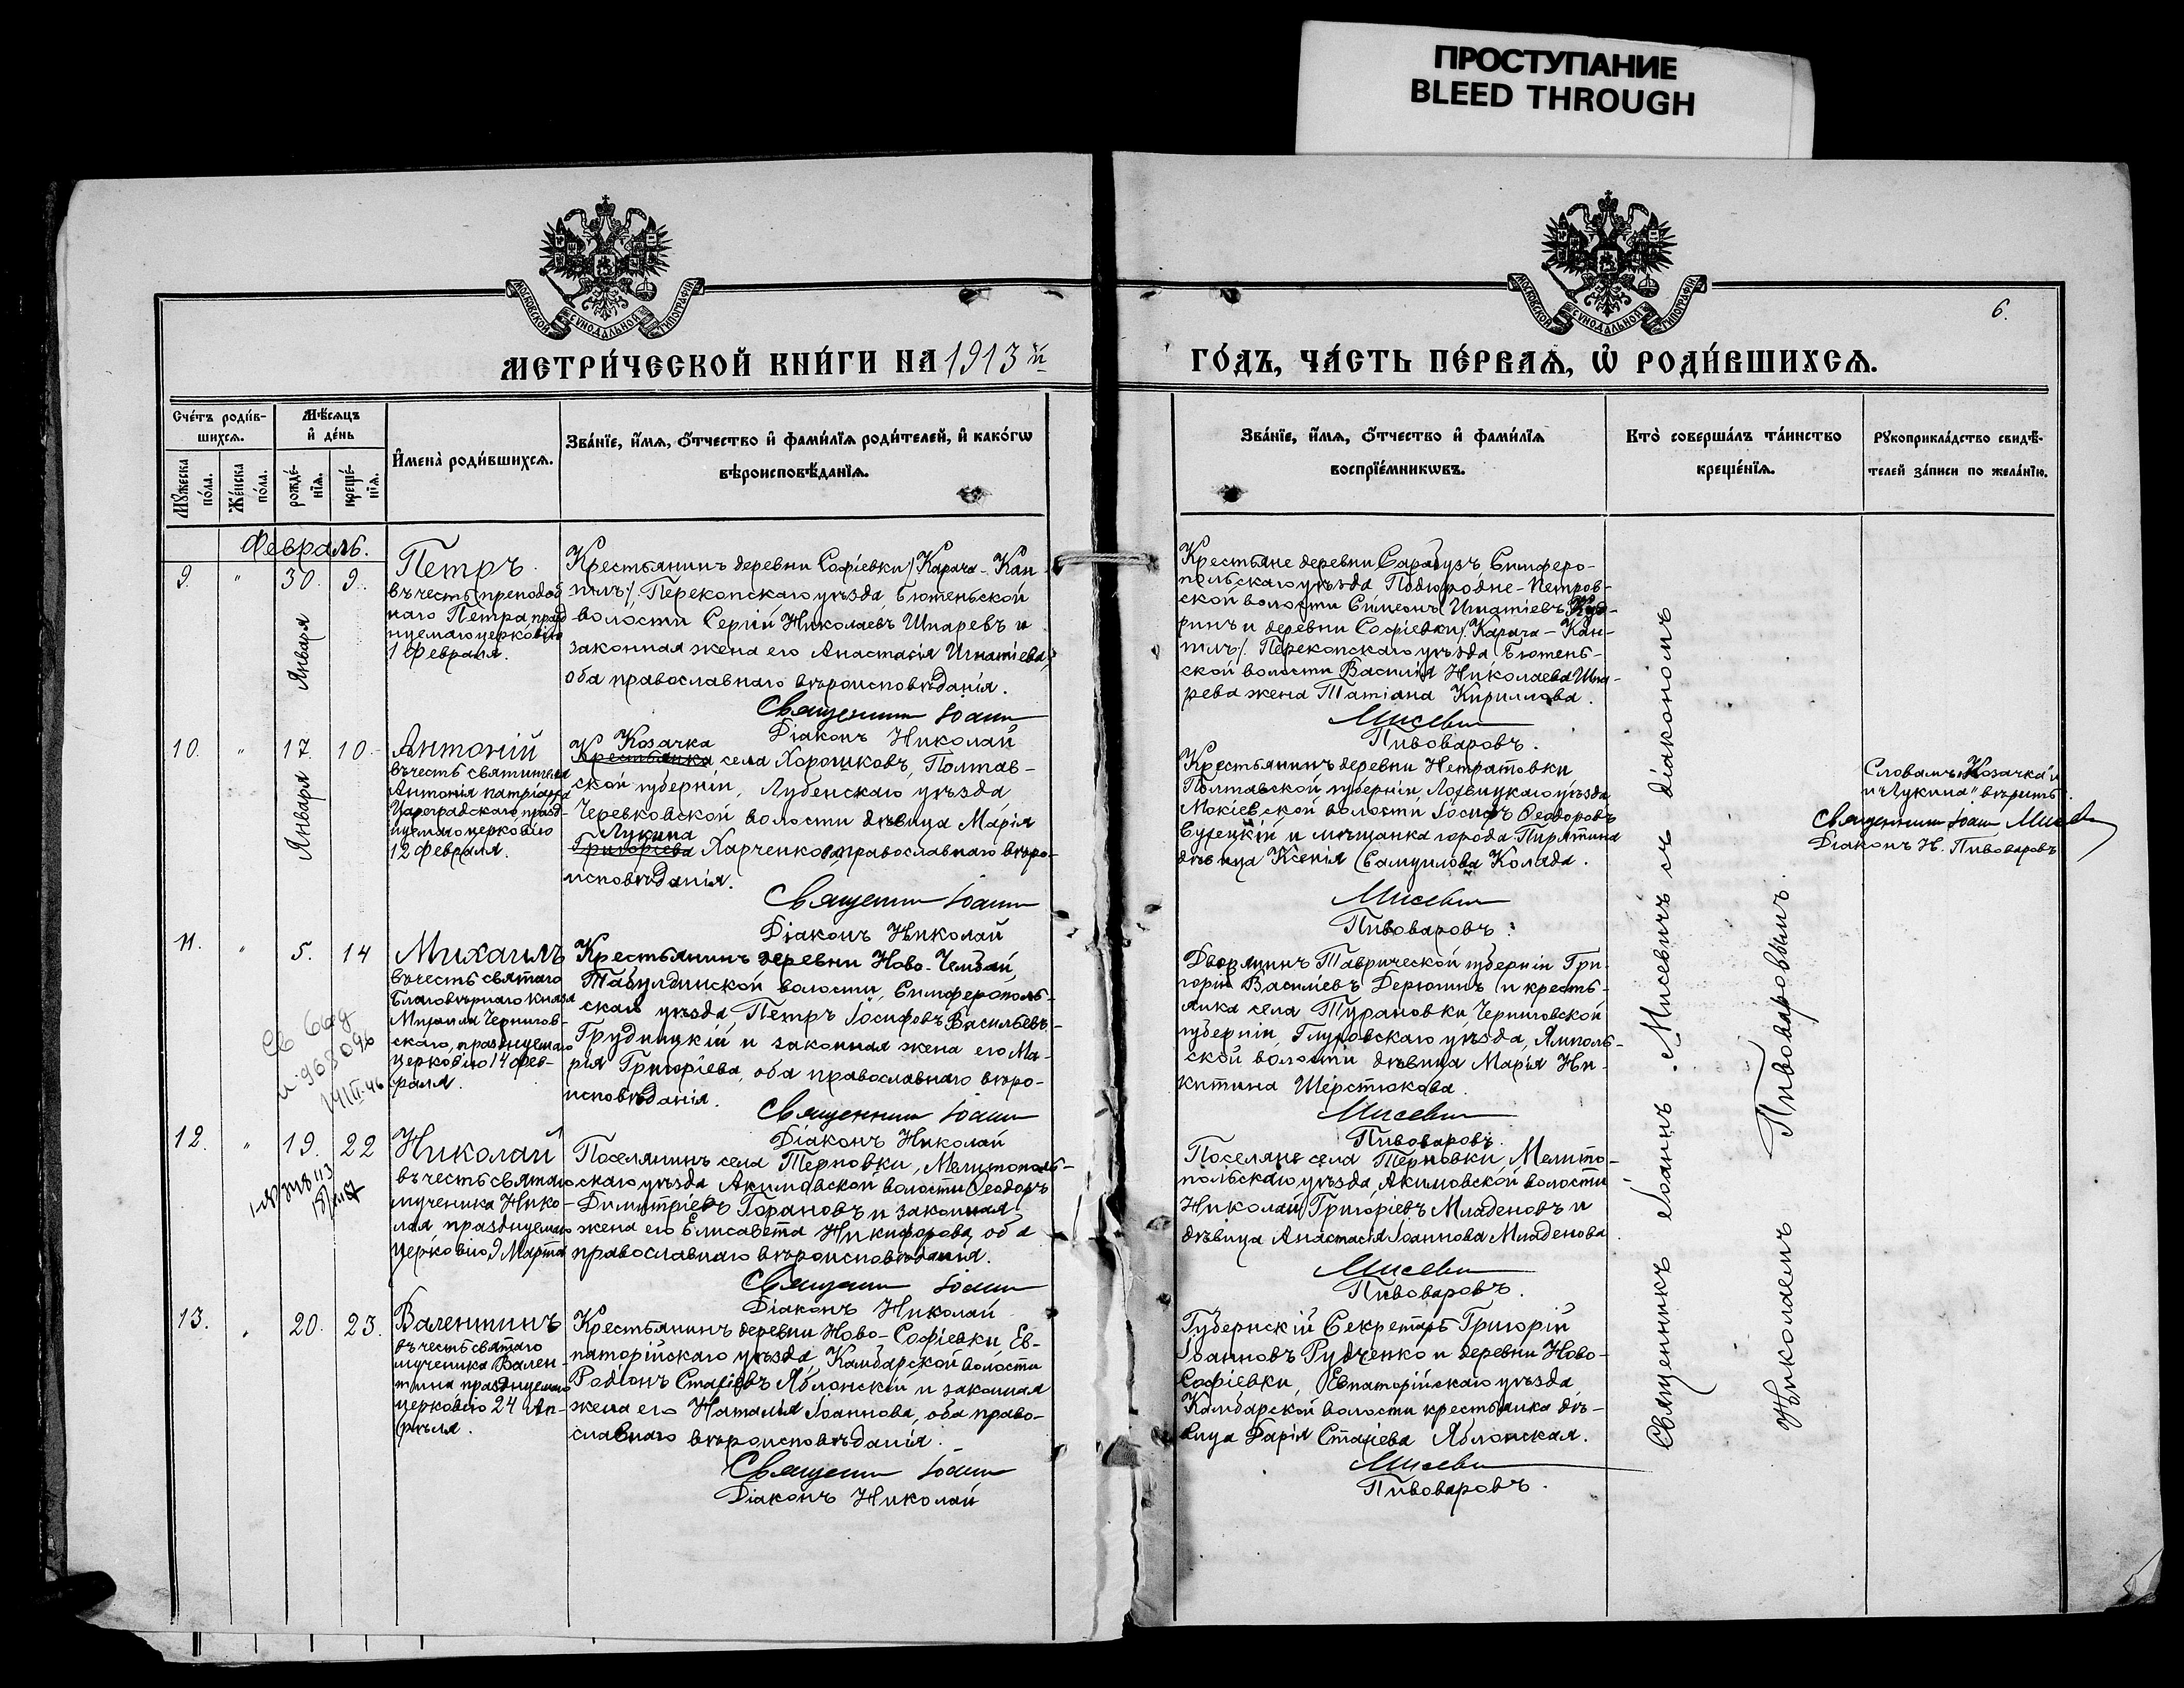 ПРОСТУПАНИЕ
BLEED THROUGH
МОСКОВСКОЙ СѴНОДАЛЬНОЙ ТИПОГРАФІИ
МОСКОВСКОЙ СѴНОДАЛЬНОЙ ТИПОГРАФІИ
6.
МЕТРИ́ЧЕСКОЙ КНИ́ГИ НА 1913 й
ГО́ДЪ, ЧА́СТЬ ПЕ́РВАѦ, Ѡ҆ РОДИ́ВШИХСѦ.
Сче́тъ роди́в-
шихсѧ.
Мꙋ́жеска по́ла.
Же́нска по́ла.
Мѣ́сѧцъ
и҆ де́нь
рожде́-
нїѧ.
креще́-
нїѧ.
И҆мена̀ роди́вшихсѧ.
Зва́нїе, и҆́мѧ, ѻ҆́тчество и҆ фами́лїѧ роди́телей, и҆ како́гѡ
вѣроисповѣ́данїѧ.
Зва́нїе, и҆́мѧ, ѻ҆́тчество и҆ фами́лїѧ
воспрїе́мникѡвъ.
Кто̀ соверша́лъ та́инство
креще́нїѧ.
Рꙋкоприкла́дство свидѣ́-
телей за́писи по жела́нїю.
Февраль.
9. " 30. 9.
Января
Петръ.
въ честь преподоб
наго Петра, празд
нуемаго церковію
1 февраля.
Крестьянинъ деревни Софіевки /Карача-Кан
гилъ/, Перекопскаго уѣзда Бютеньской
волости Сергій Николаевъ Шпаревъ и
законная жена его Анастасія Игнатіева,
оба православнаго вѣроисповѣданія.
Священникъ Іоаннъ
Діаконъ Николай
Крестьяне деревни Сарабузъ Симферо-
польскаго уѣзда Подгородне-Петров-
ской волости Симеонъ Игнатіевъ
ринъ и деревни Софіевки /Карача-Кан-
гилъ/ Перекопскаго уѣзда Бютень-
ской волости Василія Николаева Шпа-
рева жена Татіана Кириллова.
Мисевичъ
Пивоваровъ.
10. " 17. 10.
Января
Антоній
въ честь святителя
Антонія патріарха
Цареградскаго, празд-
нуемаго церковію
12 февраля.
Козачка
Крестьянка села Хорошковъ, Полтав-
ской губерніи, Лубенскаго уѣзда
Черевковской волости дѣвица Марія
Лукина
Григоріева Харченкова, православнаго вѣро-
исповѣданія.
Священникъ Іоаннъ
Діаконъ Николай
Крестьянинъ деревни Нетратовки
Полтавской губерніи Лохвицкаго уѣзда
Мокіевской волости Іосифъ Ѳеодоровъ
Сурецкій и мѣщанка города Пирятина
дѣвица Ксенія Самуилова Коляда.
Мисевичъ
Пивоваровъ.
Словамъ „Козачка"
и „Лукина" вѣрить
Священникъ Іоаннъ Мисевичъ
Діаконъ Н. Пивоваровъ
11. " 5. 14
Михаилъ
въ честь святаго
Благовѣрнаго Князя
Михаила Чернигов-
скаго, празднуемаго
церковію 14 фев-
раля.
Крестьянинъ деревни Ново-Чембай,
Табулдинской волости, Симферополь-
скаго уѣзда, Петръ Іосифовъ Васильевъ-
Грудницкій и законная жена его Ма-
рія Григоріева, оба православнаго вѣро-
исповѣданія.
Священникъ Іоаннъ
Діаконъ Николай
Дворянинъ Таврической губерніи Гри-
горій Василіевъ Дерюгинъ и кресть-
янка села Турановки Черниговской
губерніи, Глуховскаго уѣзда, Ямполь-
ской волости дѣвица Марія Ни-
китина Шерстюкова.
Мисевичъ
Пивоваровъ.
12. " 19. 22
Николай
въ честь святаго
мученика Нико-
лая празднуемаго
церковію 9 Марта
Поселянинъ села Терновки, Мелитополь-
скаго уѣзда Акимовской волости Ѳеодоръ
Димитріевъ Горановъ и законная
жена его Елисавета Никифорова, оба
православнаго вѣроисповѣданія.
Священникъ Іоаннъ
Діаконъ Николай
Поселяне села Терновки, Мелито-
польскаго уѣзда, Акимовской волости
Николай Григоріевъ Младеновъ и
дѣвица Анастасія Іоаннова Младенова
Мисевичъ
Пивоваровъ.
13. " 20. 23.
Валентинъ
въ честь святаго
мученика Вален-
тина празднуемаго
церковію 24 Ап-
рѣля.
Крестьянинъ деревни Ново-Софіевки, Ев-
паторійскаго уѣзда, Камбарской волости
Родіонъ Стахіевъ Яблонскій и законная
жена его Наталія Іоаннова, оба право-
славнаго вѣроисповѣданія.
Священникъ Іоаннъ
Діаконъ Николай
Губернскій Секретарь Григорій
Іоанновъ Рудченко и деревни Ново-
Софіевки, Евпаторійскаго уѣзда
Камбарской волости крестьянка дѣ-
вица Дарія Стахіева Яблонская.
Мисевичъ
Пивоваровъ.
Священникъ Іоаннъ Мисевичъ съ діакономъ
Николаемъ Пивоваровымъ.